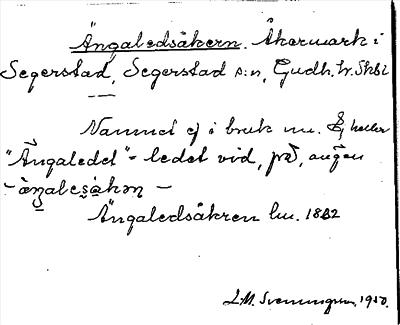 Ängaledsåkern. Åkermark i
Segerstad, Segerstad s:n, Gudh. hr. Skbl
Namnet ej i bruk nu. Ej heller
"Ängaledet" = ledet vid, på, ängen
Ängaledsåkren lm. 1882
1950.